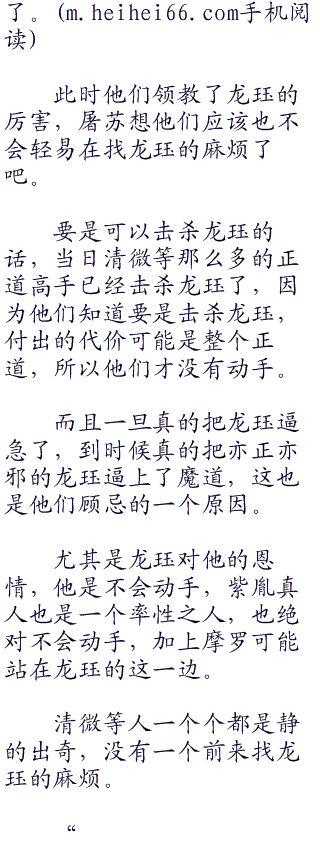 了。(m.heihei66.com手机阅
读)
此时他们领教了龙珏的
厉害，屠苏想他们应该也不
会轻易在找龙珏的麻烦了
吧。
要是可以击杀龙珏的
话，当日清微等那么多的正
道高手已经击杀龙珏了，因
为他们知道要是击杀龙珏，
付出的代价可能是整个正
道，所以他们才没有动手。
而且一旦真的把龙珏逼
急了，到时候真的把亦正亦
邪的龙珏逼上了魔道，这也
是他们顾忌的一个原因。
尤其是龙珏对他的恩
情，他是不会动手，紫胤真
人也是一个率性之人，也绝
对不会动手，加上摩罗可能
站在龙珏的这一边。
清微等人一个个都是静
的出奇，没有一个前来找龙
珏的麻烦。
“